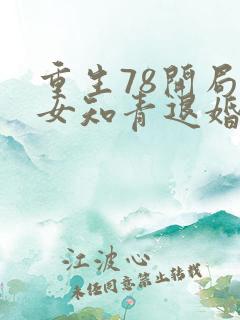 重生78開局
女知青退婚
江波心
未经同意禁止转载